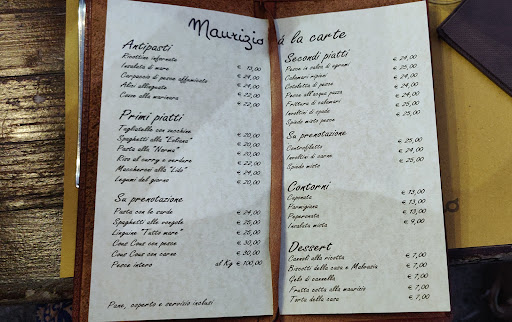 Maurizio á la carte
Antipasti
Ricottine infornate € 13,00
Insalata di mare € 24,00
Carpaccio di pesce affumicato € 24,00
Alici allinguate € 22,00
Cozze alla marinara € 22,00
Primi piatti
Tagliatelle con zucchine € 20,00
Spaghetti alla "Luciana" € 20,00
Pasta alla "Norma" € 20,00
Riso al curry e verdure € 22,00
Maccheroni alla "Lido" € 20,00
Legumi del giorno € 20,00
Su prenotazione
Pasta con le sarde € 24,00
Spaghetti alle vongole € 25,00
Linguine "Tutto mare" € 25,00
Cous Cous con pesce € 30,00
Cous Cous con carne € 30,00
Pesce intero al Kg € 100,00
Pane, coperto e servizio inclusi
Secondi piatti
Pesce in salsa di agrumi € 24,00
Calamari ripieni € 25,00
Cotoletta di pesce € 24,00
Pesce all'acqua pazza € 24,00
Frittura di calamari € 24,00
Involtini di spada € 25,00
Spiedo misto pesce € 25,00
Su prenotazione
Controfiletto € 25,00
Involtini di carne € 24,00
Spiedo misto € 25,00
Contorni
Caponata € 13,00
Parmigiana € 13,00
Peperonata € 13,00
Insalata mista € 9,00
Dessert
Cannoli alla ricotta € 7,00
Biscotti della casa e Malvasia € 7,00
Gelo di cannella € 7,00
Frutta cotta alla maurizio € 7,00
Torta della casa € 7,00